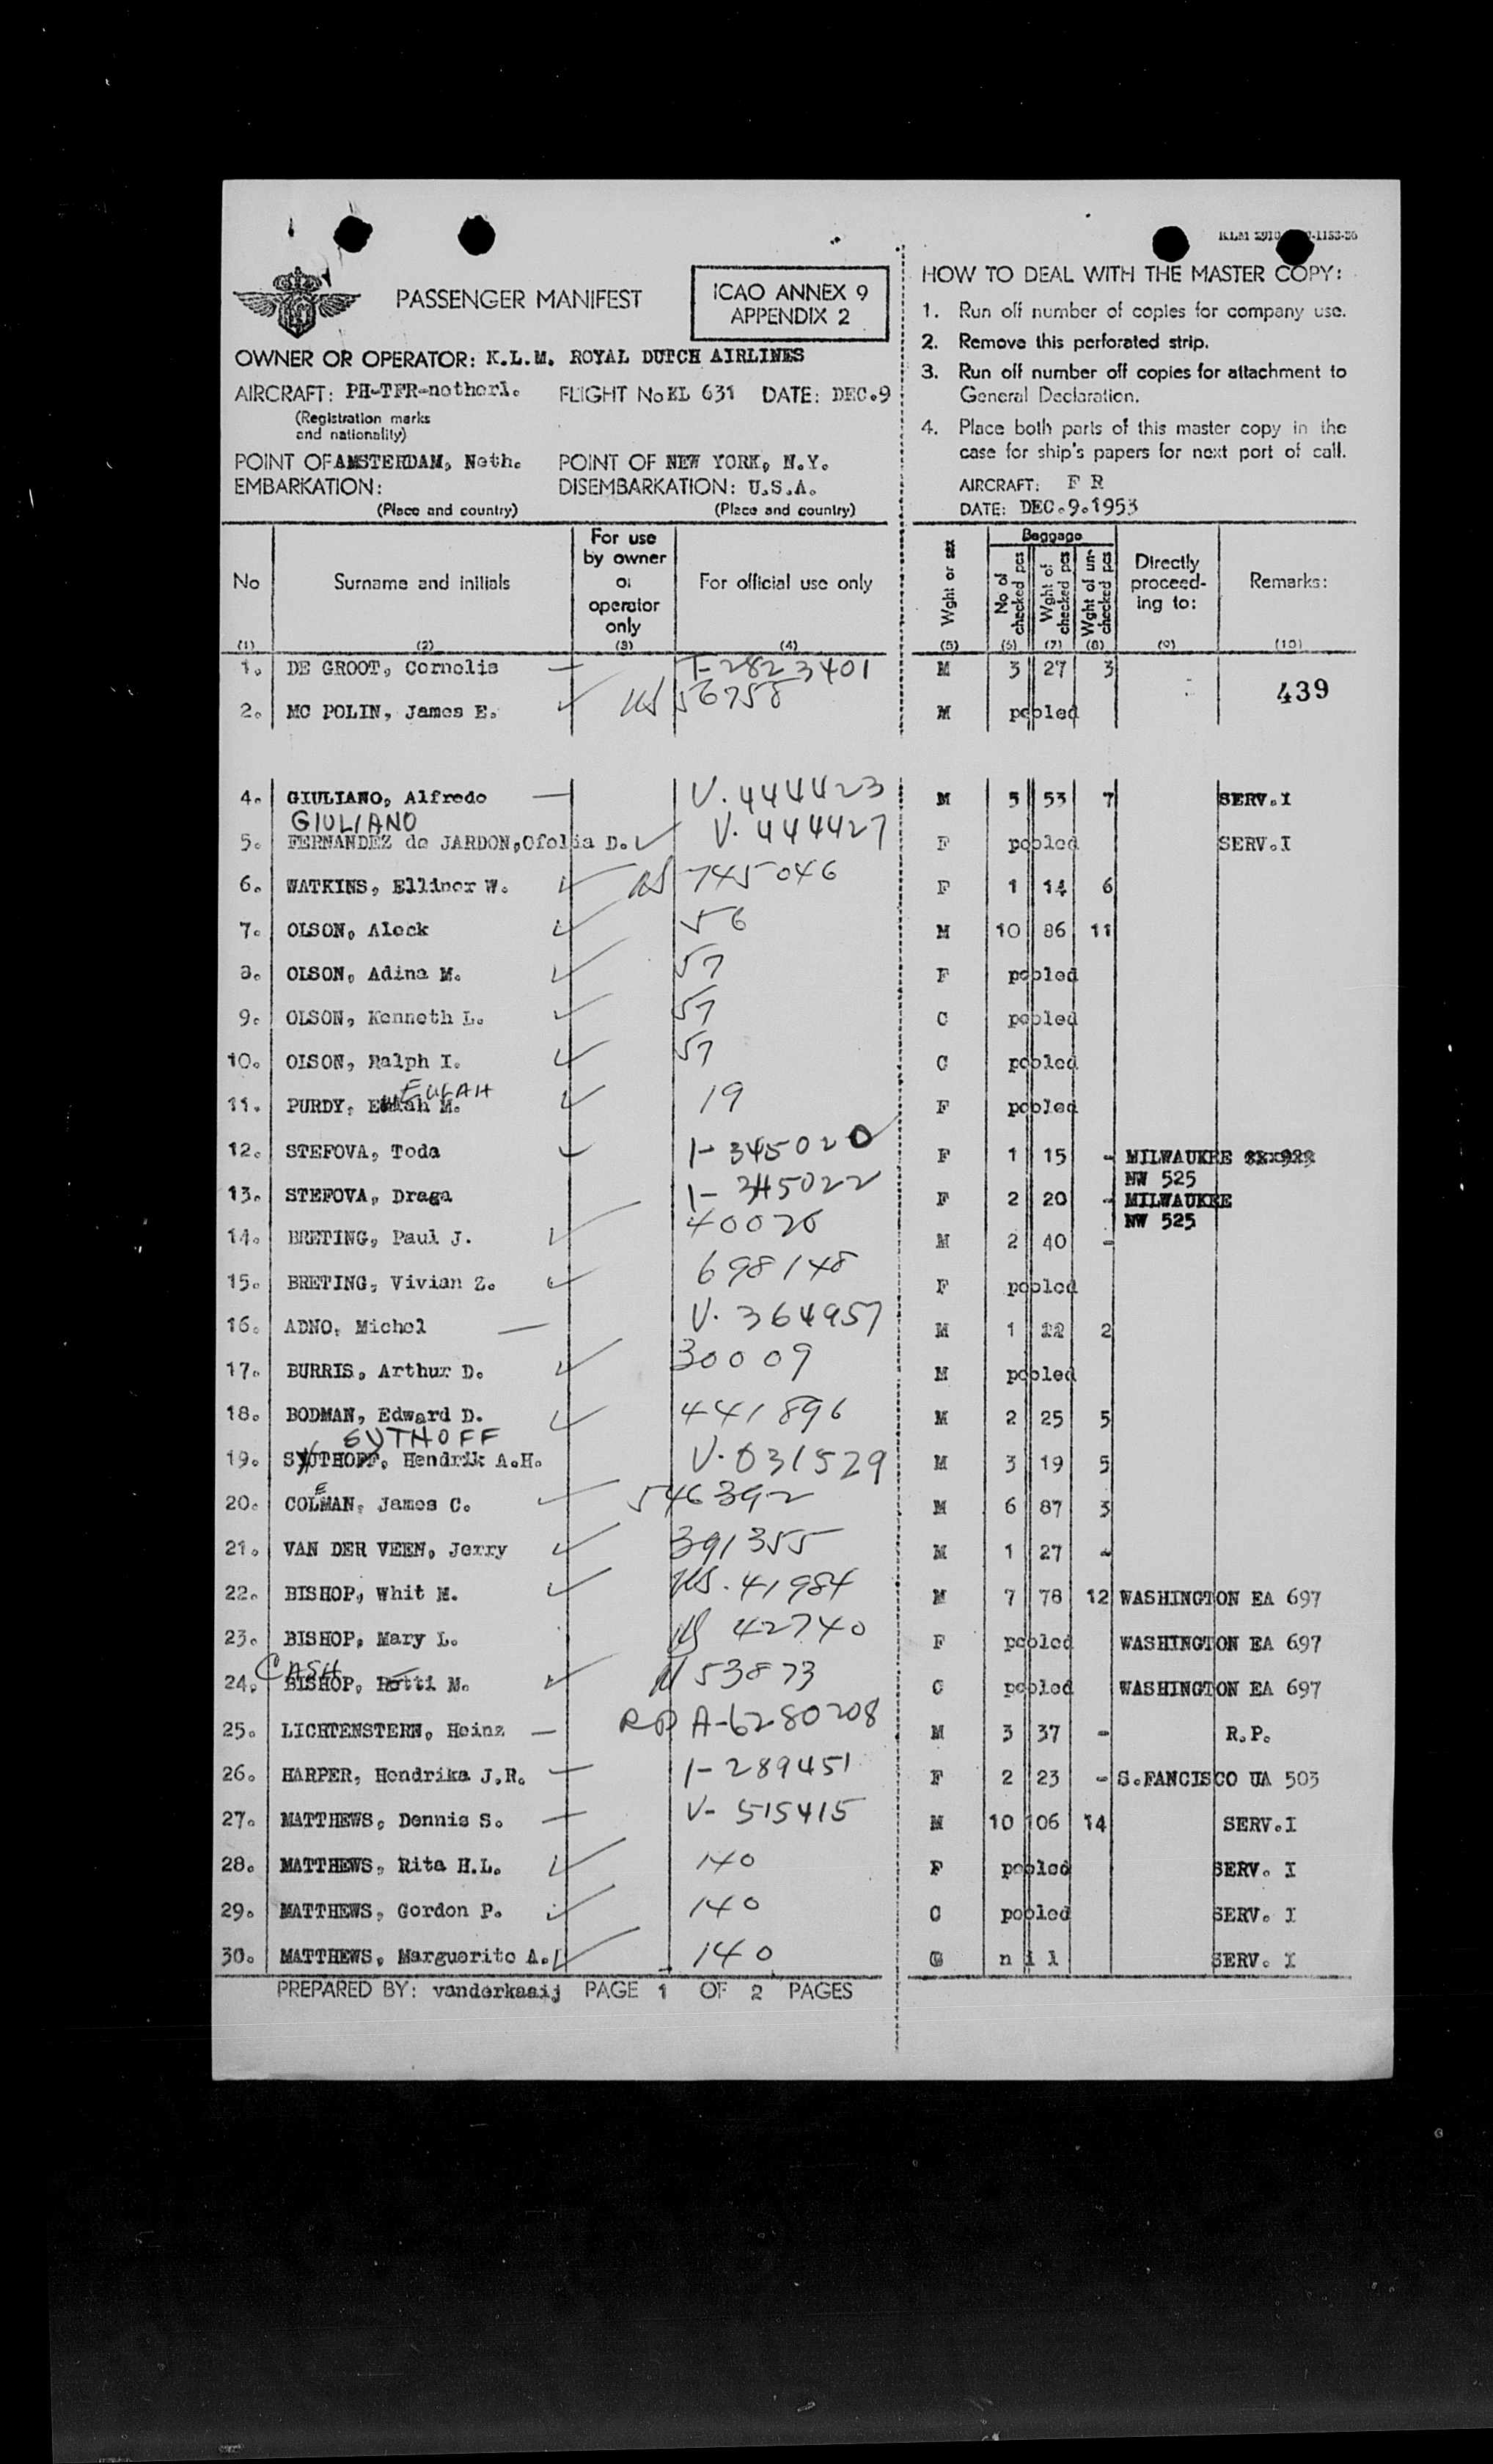 PASSENGER MANIFEST
ICAO ANNEX 9
APPENDIX 2
OWNER OR OPERATOR: K.L.M. ROYAL DUTCH AIRLINES
AIRCRAFT: PH-TFR-netherl. FLIGHT No KL 631 DATE: DEC.9
(Registration marks
and nationality)
POINT OF AMSTERDAM, Neth. POINT OF NEW YORK, N.Y.
EMBARKATION: DISEMBARKATION: U.S.A.
(Place and country) (Place and country)
HOW TO DEAL WITH THE MASTER COPY:
1. Run off number of copies for company use.
2. Remove this perforated strip.
3. Run off number off copies for attachment to
General Declaration.
4. Place both parts of this master copy in the
case for ship's papers for next port of call.
AIRCRAFT: F R
DATE: DEC.9.1953
No Surname and initials For use by owner or operator only For official use only Wght or sex Baggage No of checked pcs Wght of checked pcs Wght of un-checked pcs Directly proceed-ing to: Remarks:
(1) (2) (3) (4) (5) (6) (7) (8) (9) (10)
1. DE GROOT, Cornelis — T-2823401 M 3 27 3
439
2. MC POLIN, James E. US 56758 M pooled
4. GIULIANO, Alfredo — V. 444423 M 5 53 7 SERV.I
GIULIANO
5. FERNANDEZ de JARDON, Ofelia D. V. 444427 F pooled SERV.I
6. WATKINS, Ellinor W. US 745046 F 1 14 6
7. OLSON, Aleck 56 M 10 86 11
8. OLSON, Adina M. 57 F pooled
9. OLSON, Kenneth L. 57 C pooled
10. OLSON, Ralph I. 57 C pooled
EULAH
11. PURDY, M. 19 F pooled
12. STEFOVA, Toda 1-345020 F 1 15 - MILWAUKEE
NW 525
13. STEFOVA, Draga 1-345022 F 2 20 - MILWAUKEE
NW 525
14. BRETING, Paul J. 40026 M 2 40 -
15. BRETING, Vivian Z. 698148 F pooled
16. ADNO, Michel — V. 364957 M 1 22 2
17. BURRIS, Arthur D. 30009 M pooled
18. BODMAN, Edward D. 441896 M 2 25 5
SYTHOFF
19. SYJTHOFF, Hendrik A.H. V. 031529 M 3 19 5
E
20. COLMAN, James C. 546392 M 6 87 3
21. VAN DER VEEN, Jerry 391355 M 1 27 -
22. BISHOP, Whit M. US. 41984 M 7 78 12 WASHINGTON EA 697
23. BISHOP, Mary L. US 42740 F pooled WASHINGTON EA 697
CASH
24. BISHOP, Patti M. 53873 C pooled WASHINGTON EA 697
25. LICHTENSTERN, Heinz — RP A-6280208 M 3 37 - R.P.
26. HARPER, Hendrika J.R. — 1-289451 F 2 23 - S.FANCISCO UA 503
27. MATTHEWS, Dennis S. — V- 515415 M 10 106 14 SERV.I
28. MATTHEWS, Rita H.L. 140 F pooled SERV. I
29. MATTHEWS, Gordon P. 140 C pooled SERV. I
30. MATTHEWS, Marguerite A. 140 C nil SERV. I
PREPARED BY: vanderkaaij PAGE 1 OF 2 PAGES